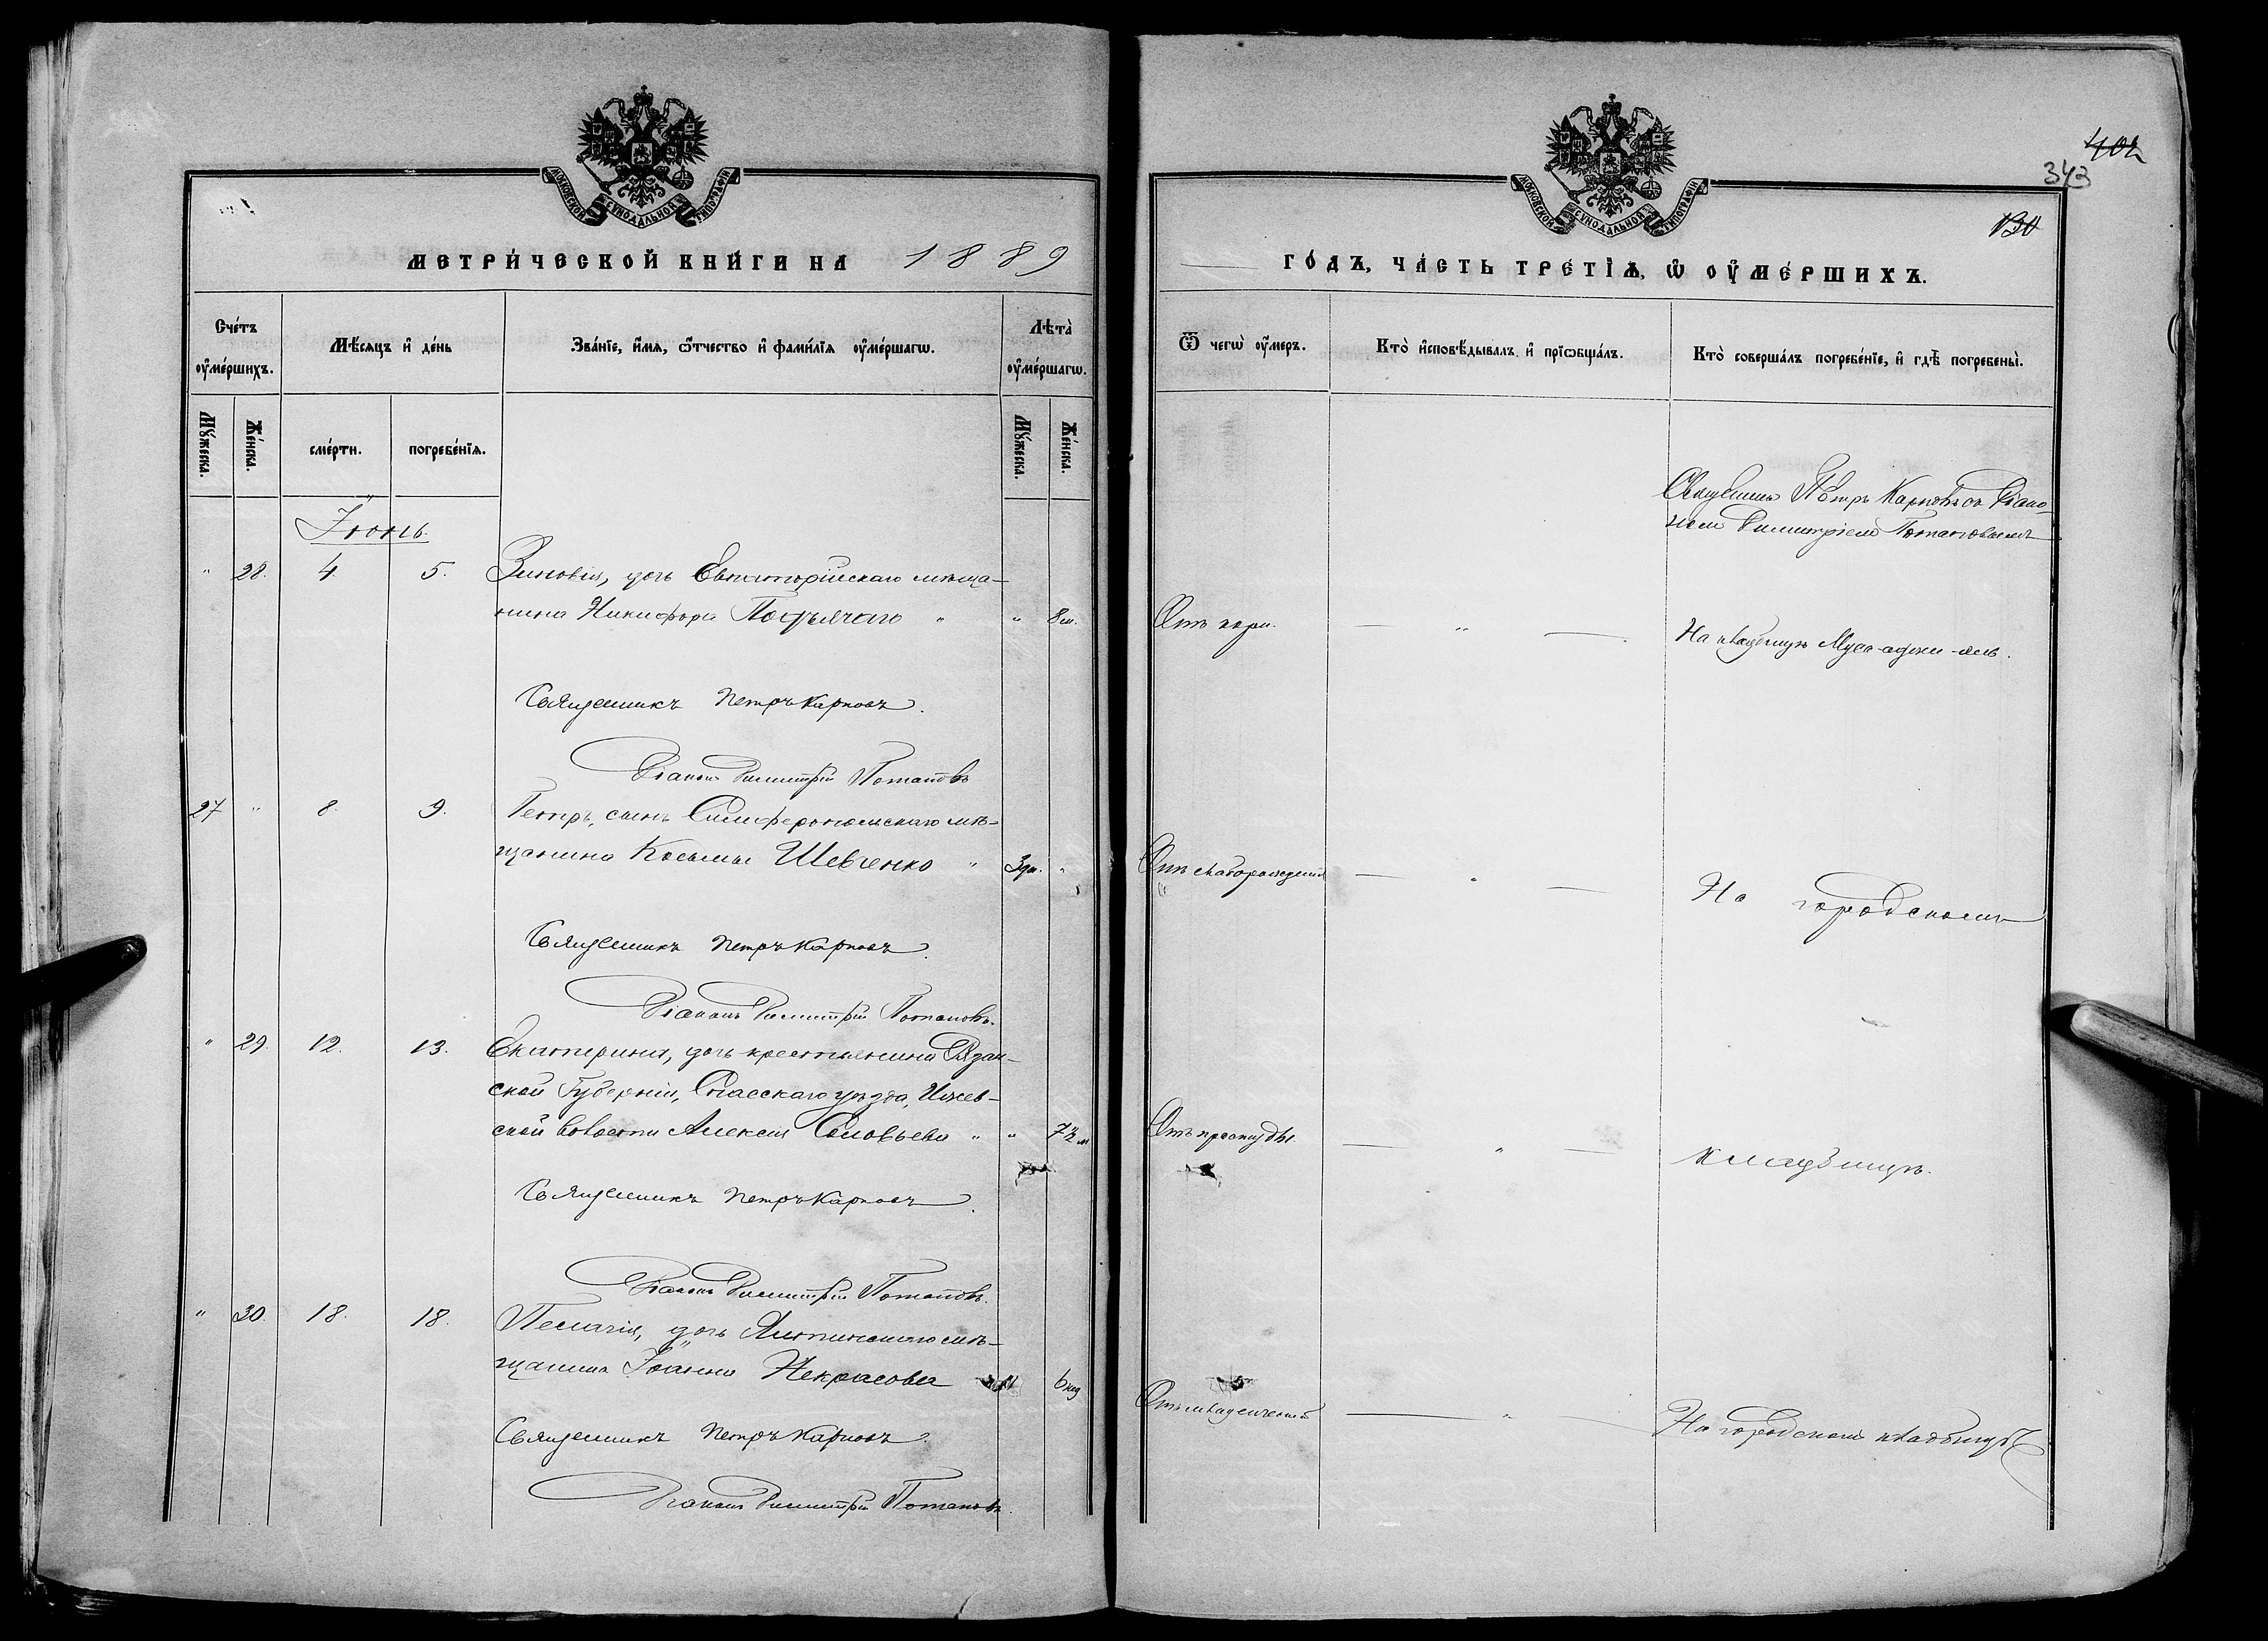 МОСКОВСКОЙ СѴНОДАЛЬНОЙ ТИПОГРАФІИ
МЕТРИ́ЧЕСКОЙ КНИ́ГИ НА 1889
Сче́тъ оу҆ме́ршихъ.
Мѣ́сяцъ и҆ де́нь
Зва́нїе, и҆́мѧ, ѻ҆́тчество и҆ фами́лїѧ оу҆ме́ршагѡ.
Лѣта̀ оу҆ме́ршагѡ.
Мꙋ́жеска.
Же́нска.
сме́рти.
погребе́нїѧ.
Мꙋ́жеска.
Же́нска.
Іюнь.
" 28. 4. 5. Зиновія, дочь Евпаторійскаго мѣща-
нина Никифора Подъячаго " " 8 м.
Священникъ Петръ Карповъ.
Діаконъ Димитрій Потаповъ
27 " 8. 9. Петръ, сынъ Симферопольскаго мѣ-
щанина Косьмы Шевченко " 3 дн. "
Священникъ Петръ Карповъ.
Діаконъ Димитрій Потаповъ.
" 29. 12. 13. Екатерина, дочь крестьянина Рязан-
ской Губерніи, Спасскаго уѣзда, Ижев-
ской волости Алексія Соловьева " "
Священникъ Петръ Карповъ.
Діаконъ Димитрій Потаповъ.
" 30. 18. 18. Пелагія, дочь Ялтинскаго мѣ-
щанина Іоанна Некрасова
Священникъ Петръ Карповъ.
Діаконъ Димитрій Потаповъ.
402
343
МОСКОВСКОЙ СѴНОДАЛЬНОЙ ТИПОГРАФІИ
ГО́ДЪ, ЧА́СТЬ ТРЕ́ТІѦ, Ѡ҆ ОУ҆МЕ́РШИХЪ.
Ѿ чегѡ̀ оу҆́меръ.
Кто̀ и҆сповѣ́дывалъ и҆ прїѡбща́лъ.
Кто̀ соверша́лъ погребе́нїе, и҆ гдѣ̀ погребены̀.
Священникъ Петръ Карповъ съ Діако-
номъ Димитріемъ Потаповымъ
Отъ кори. — " — На кладбищѣ Муса-аджи-
Отъ слаборожденія — " — На городскомъ
Отъ простуды — " — кладбищѣ.
Отъ младенческой — " — На городскомъ кладбищѣ